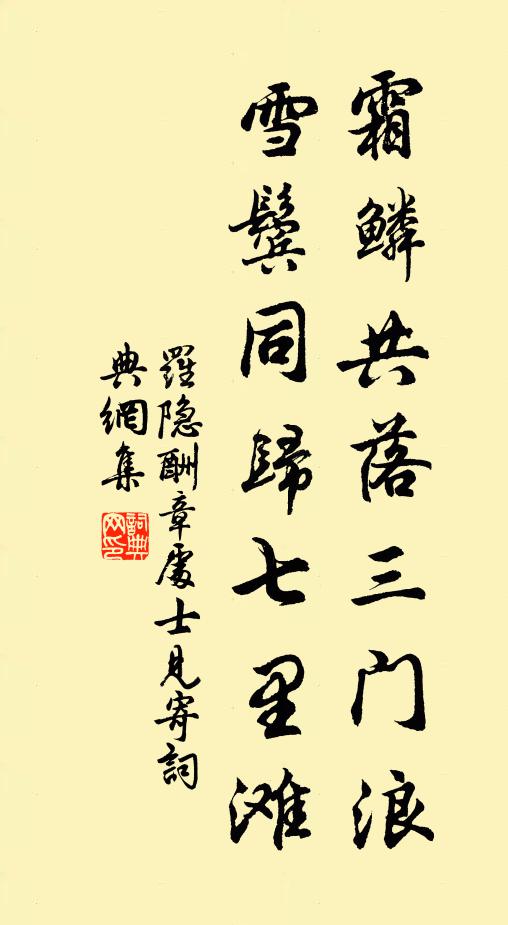 霜鳞共落三门浪
雪鬓同歸七里滩
羅隐酬章處士見寄詞
典網集
詞典网印